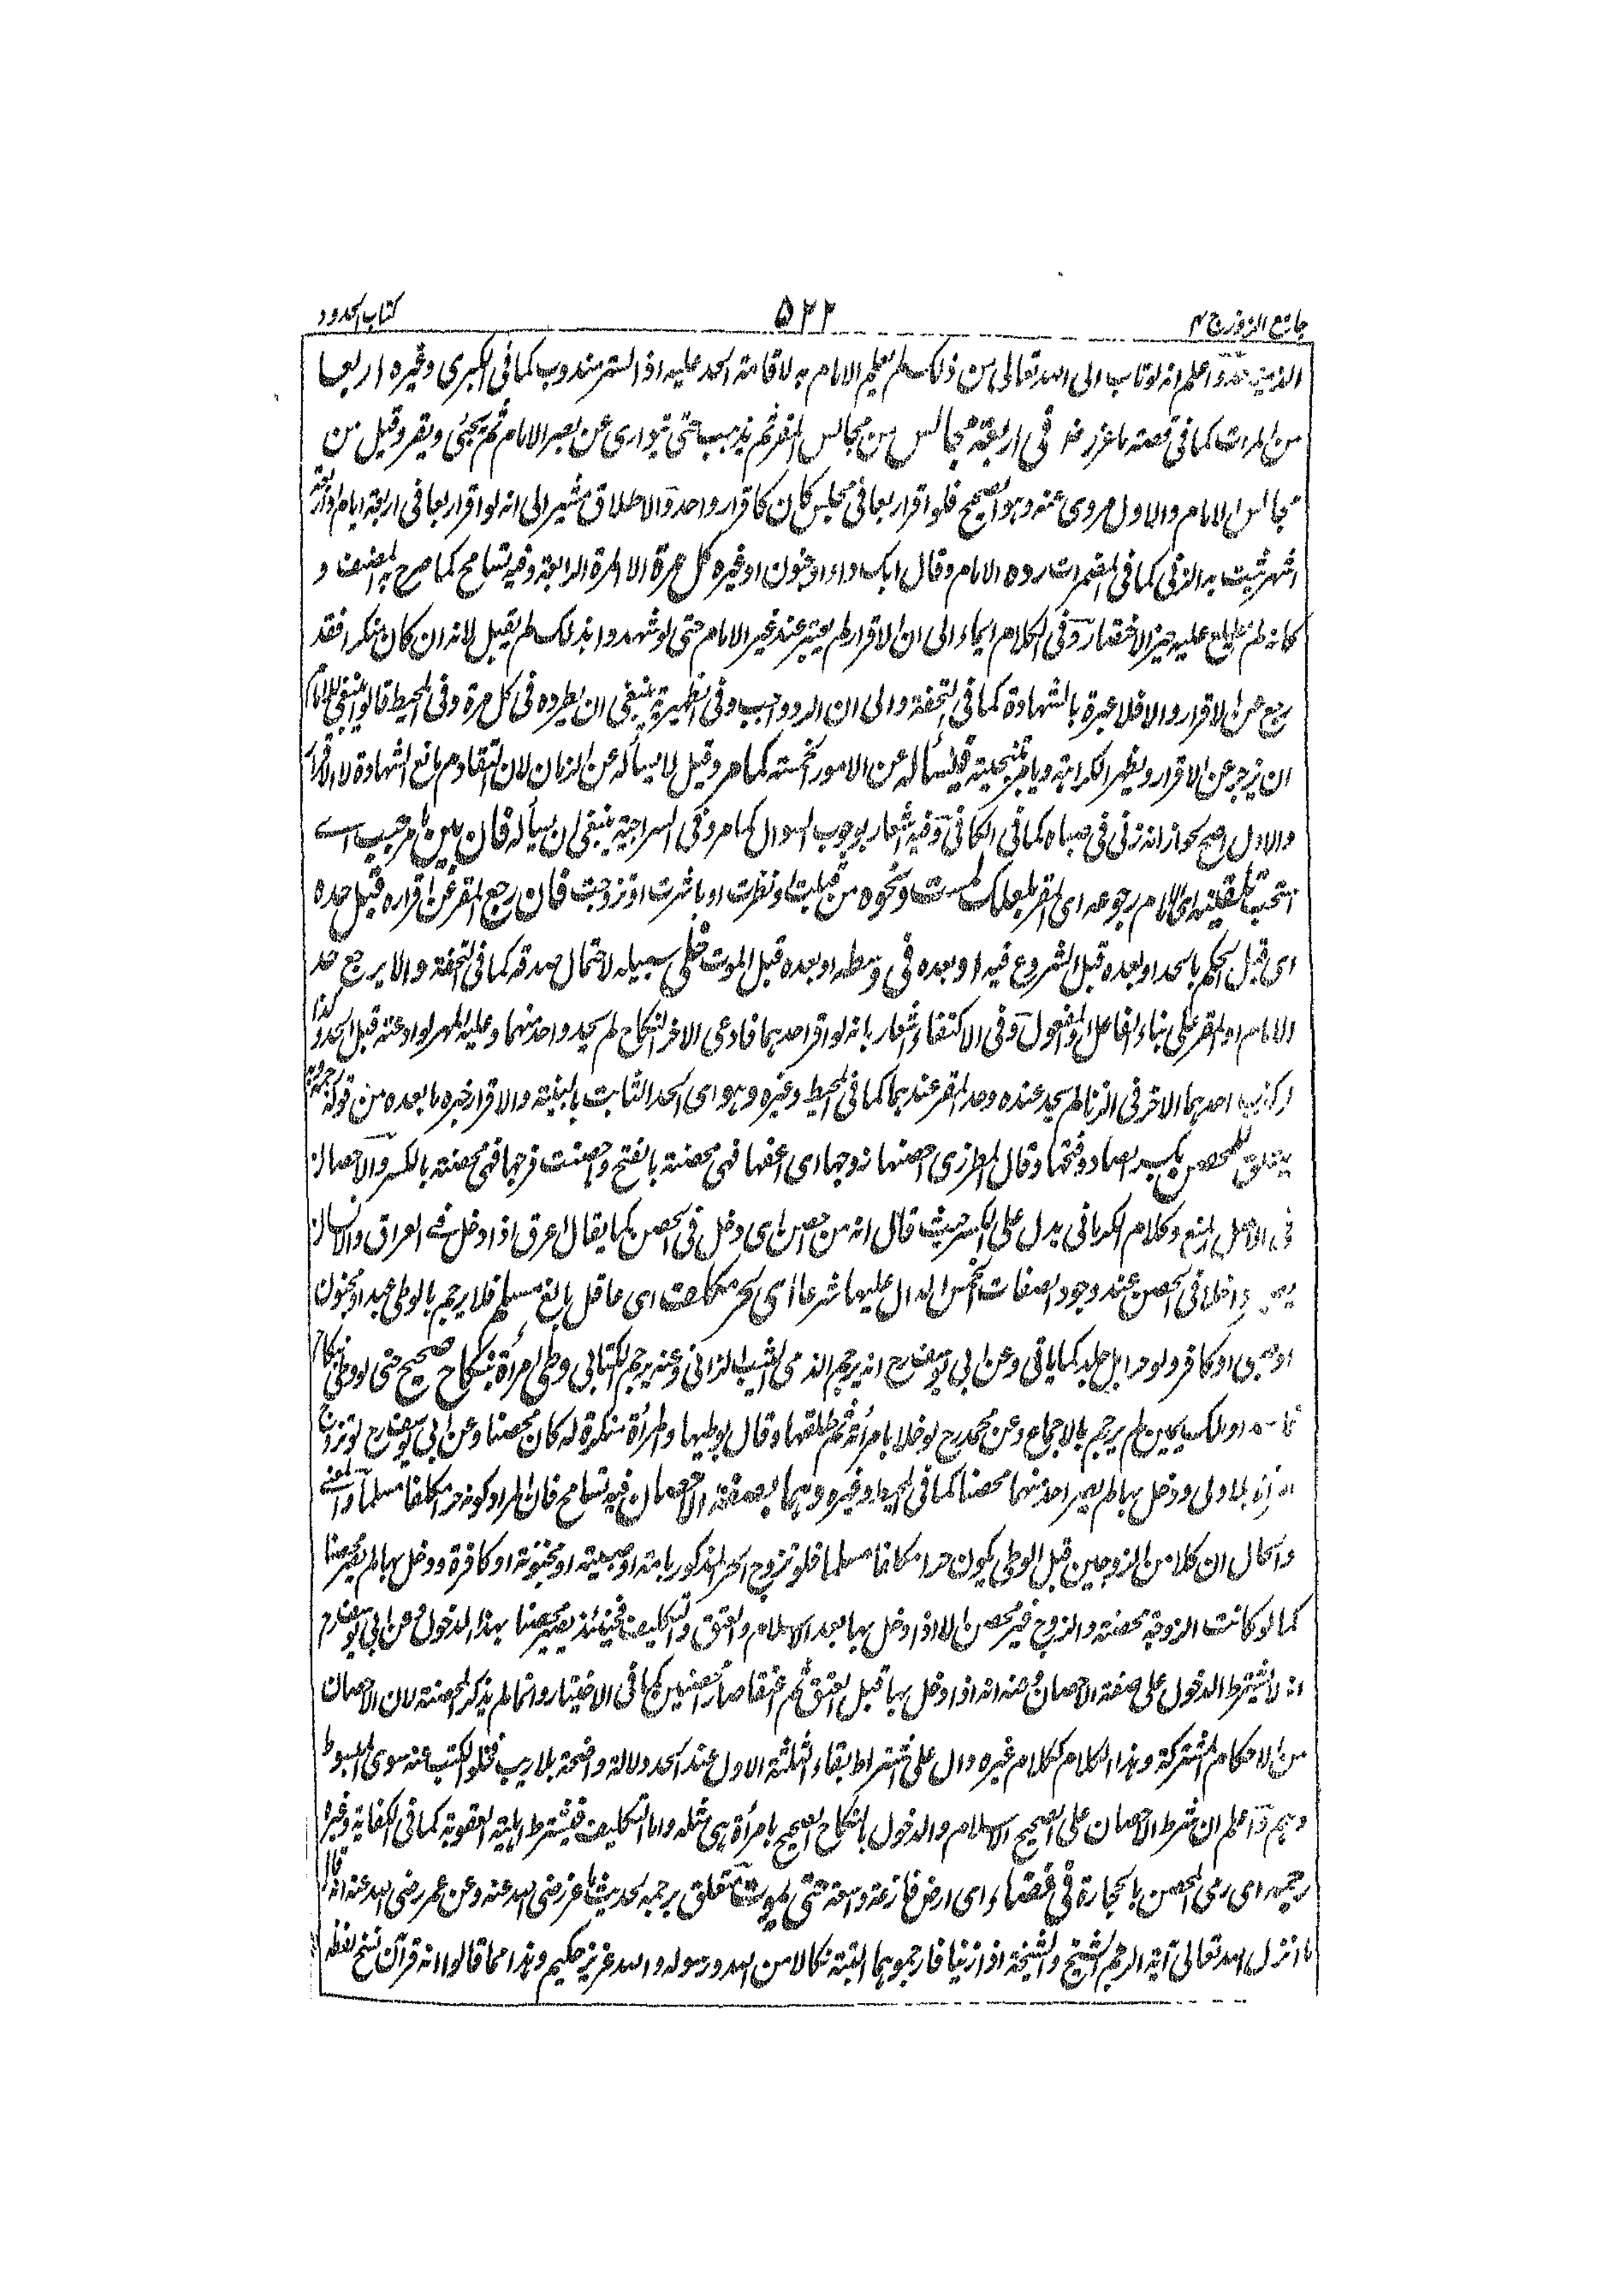 جامع الرموز ج ۴
۵۲۲
كتاب الحدود
واعلم انه لو تاب الى الله تعالى من ذلك لم يعلم الامام به لاقامة الحد عليه اذ الستر مندوب كما فى الكبرى وغيره اربعا
من المرات كما فى قصة ماعز رض فى اربعة مجالس من مجالس المقر ثم يذهب حتى توارى عن بصر الامام ثم يجئ ويقر وقيل من
مجالس الامام والاول مروى عنه وهو الصحيح فلو اقر اربعا فى مجلس كان كاقرار واحد والاطلاق مشير الى انه لو اقر اربعا فى اربعة ايام او اربعة
اشهر ثبت به الزنى كما فى المضمرات رده الامام وقال ابك داء او جنون او غيره كل مرة الا المرة الرابعة وفيه تسامح كما صرح به المصنف و
كانه لم يطلع عليه حين الاختصار وفى الكلام ايماء الى ان الاقرار لم يعتبر عند غير الامام حتى لو شهدوا بذلك لم يقبل لانه ان كان منكرا فقد
رجع عن الاقرار والا فلا عبرة بالشهادة كما فى التحفة والى ان الرد واجب وفى الظهيرية ينبغى ان يطرده فى كل مرة وفى المحيط قالوا ينبغى للامام
ان يزجر عن الاقرار ويظهر الكراهة ويامر بتنحيته فيسأله عن الامور الخمسة كما مر وقيل لا يسأله عن الزمان لان التقادم مانع الشهادة لا الاقرار
والاول اصح لجواز انه زنى فى صباه كما فى الكافى وفيه اشعار بوجوب السوال كما مر وفى السراجية ينبغى ان يسأله فان بين ما مر حبب اى
استحب تلقينه اى الامام رجوعه اى المقر بلعلك لمست ونحوه من قبلت او نظرت او باشرت او تزوجت فان رجع المقر عن اقراره قبل حده
اى قبل الحكم بالحد او بعده قبل الشروع فيه او بعده فى وسطه او بعده قبل الموت خلى سبيله لاحتمال صدقه كما فى التحفة والا يرجع حد
الامام او المقر على بناء الفاعل او المفعول وفى الاكتفاء اشعار بانه لو اقر احدهما فادعى الاخر النكاح لم يحد واحد منهما وعليه المهر لو ادعته قبل الحد وكذا
احدهما الاخر فى الزنا لم يحد عنده وحد المقر عندهما كما فى المحيط وغيره وهو اى الحد الثابت بالبينة والاقرار خبره ما بعده من قوله رجمه
يتعلق للمحصن بكسر الصاد وفتحها وقال المطرزى احصنها زوجها اى اعفها فهى محصنة بالفتح واحصنت فرجها فهى محصنة بالكسر والاحصان
فى الاصل المنع وكلام الكرمانى يدل على الكسر حيث قال انه من احصن اى دخل فى الحصن كما يقال اعرق اذا دخل فى العراق والانسان
داخلا فى الحصن عند وجود الصفات الخمس الدال عليها شرعا اى لحر مكلف اى عاقل بالغ مسلم فلا يرجم بالوطى عبد او مجنون
او صبى او كافر ولو حد بل جلد كما ياتى وعن ابى يوسف رح انه يرجم الذمى الثيب الزانى وعنه يرجم الكتابى وطى امرأة بنكاح صحيح حتى لو وطى بنكاح
او الملك يمين لم يرجم بالاجماع وعن محمد رح لو خلا بامرأته ثم طلقها وقال بوطيها والمرأة منكرة له كان محصنا وعن ابى يوسف رح لو تزوج
بلا ولى ودخل بها لم يصير احد منهما محصنا كما فى المحيط وغيره وهما بصفة الاحصان فيه تسامح فان المراد كونه حرا مكلفا مسلما والمعنى
والحال ان كلا من الزوجين قبل الوطى يكون حرا مكلفا مسلما فلو تزوج الحر المذكور بامة او صبية او مجنونة او كافرة ودخل بها لم يصر محصنا
كما لو كانت الزوجة محصنة والزوج غير محصن الا اذا دخل بها بعد الاسلام والعتق والتكليف فحينئذ يصير محصنا بهذا الدخول وعن ابى يوسف رح
انه لا يشترط الدخول على صفة الاحصان فعنه انه اذا دخل بها قبل العتق ثم اعتقا صارا محصنين كما فى الاختيار وانما لم يذكر المحصنة لان الاحصان
من الاحكام المشتركة وهذا الكلام ككلام غيره دال على اشتراط بقاء الثلثة الاول عند الحد دلالة واضحة بلا ريب فخلو الكتب عنه سوى المبسوط
وهم واعلم ان شرط الاحصان على الصحيح الاسلام والدخول بالنكاح الصحيح بامرأة هى مثله واما التكليف فيشترط اهلية العقوبة كما فى الكفاية وغيره
رجمه اى رمى المحصن بالحجارة فى فضاء اى ارض فارغة واسعة حتى يموت متعلق برجمه لحديث ماعز رضى الله عنه وعن عمر رضى الله عنه انه قال
ما انزل الله تعالى آية الرجم الشيخ والشيخة اذا زنيا فارجموهما البتة نكالا من الله ورسوله والله عزيز حكيم وهذا مما قالوا انه قرآن نسخ لفظه